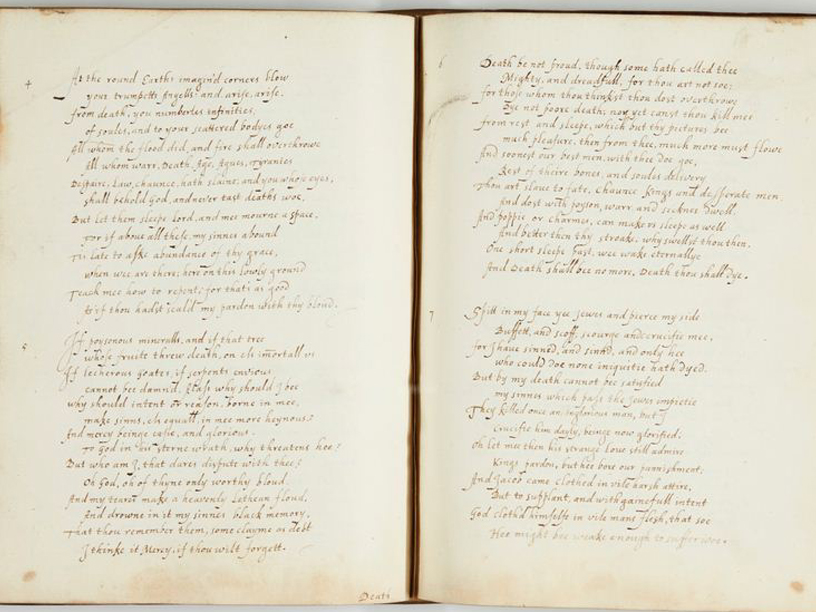 4
At the round Earths imagin'd corners blow
your trumpetts Angells: and arise, arise.
from death, you numberles infinities,
of soules, and to your scattered bodyes goe
All whom the flood did, and fire shall overthrowe
All whom warr, Death, Age, Agues, Tyranies
Despaire, Law, chaunce, hath slaine, and you whose eyes,
shall behold God, and never tast deaths woe,
But let them sleepe Lord, and mee mourne a space,
For if above all these, my sinnes abound
Tis late to aske abundance of thy grace,
when wee are there; here on this lowly ground
Teach mee how to repent; for thats as good
As if thou hadst seald my pardon with thy bloud.
5
If poysonous mineralls, and if that tree
whose fruite threw death, on els imortall us
If lecherous Goates, if serpents envious
cannot bee damn'd, Alass why should I bee
why should intent or reason, borne in mee,
make sinns, els equall, in mee more heynous?
And mercy beinge easie, and glorious.
To God in his sterne wrath, why threatens hee?
But who am I, that dares dispute with thee?
Oh God, oh of thyne only worthy bloud,
And my teares make a heavenly Lethean floud,
And drowne in it my sinnes black memory,
That thou remember them, some clayme as debt
I thinke it Mercy, if thou wilt forgett.
Death
6
Death be not proud, though some hath called thee
Mighty, and dreadfull, for thou art not soe;
for those whom thou thinkst thou dost overthrowe
Dye not poore death; nor yet canst thou kill mee
from rest and sleepe, which but thy pictures bee
much pleasure, then from thee, much more must flowe
And soonest our best men, with thee doe goe,
Rest of theire bones, and soules delivery
Thou art slave to fate, Chaunce Kings and desperate men
And dost with poyson, warr, and sicknes dwell,
And poppie or charmes, can make us sleepe as well
And better then thy stroake. why swellst thou then.
One short sleepe past, wee wake eternallye
And Death shall bee no more, Death thou shalt dye.
7
Spitt in my face yee Jewes and pierce my side
Buffett, and scoff, scourge and crucifie mee,
for I have sinned, and sinnd, and only hee
who could doe none iniquetie hath dyed.
But by my death cannot bee satisfied
my sinnes which pass the Jewes impietie
They killed once an inglorious man, but I
Crucifie him dayly, beinge now glorified;
Oh let mee then his strange Love still admire
Kings pardon, but hee bore our punnishment;
And Jacob came clothed in vile harsh attire,
But to supplant, and with gainefull intent
God cloth'd himselfe in vile mans flesh, that soe
Hee might bee weake enough to suffer woe.